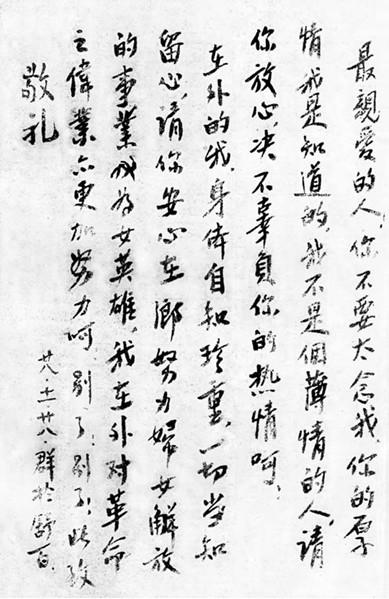 最親愛的人,你不要太念我你的厚
情我是知道的,我不是個薄情的人,請
你放心,决不辜負你的热情呵,
在外的我,身体自知珍重,一切当知
留心,請你安心在鄉努力婦女解放
的事業,成为女英雄,我在外对革命
之偉業亦更加努力呵,别了,别了,此致
敬礼
廿八.十一廿八.群於舒百